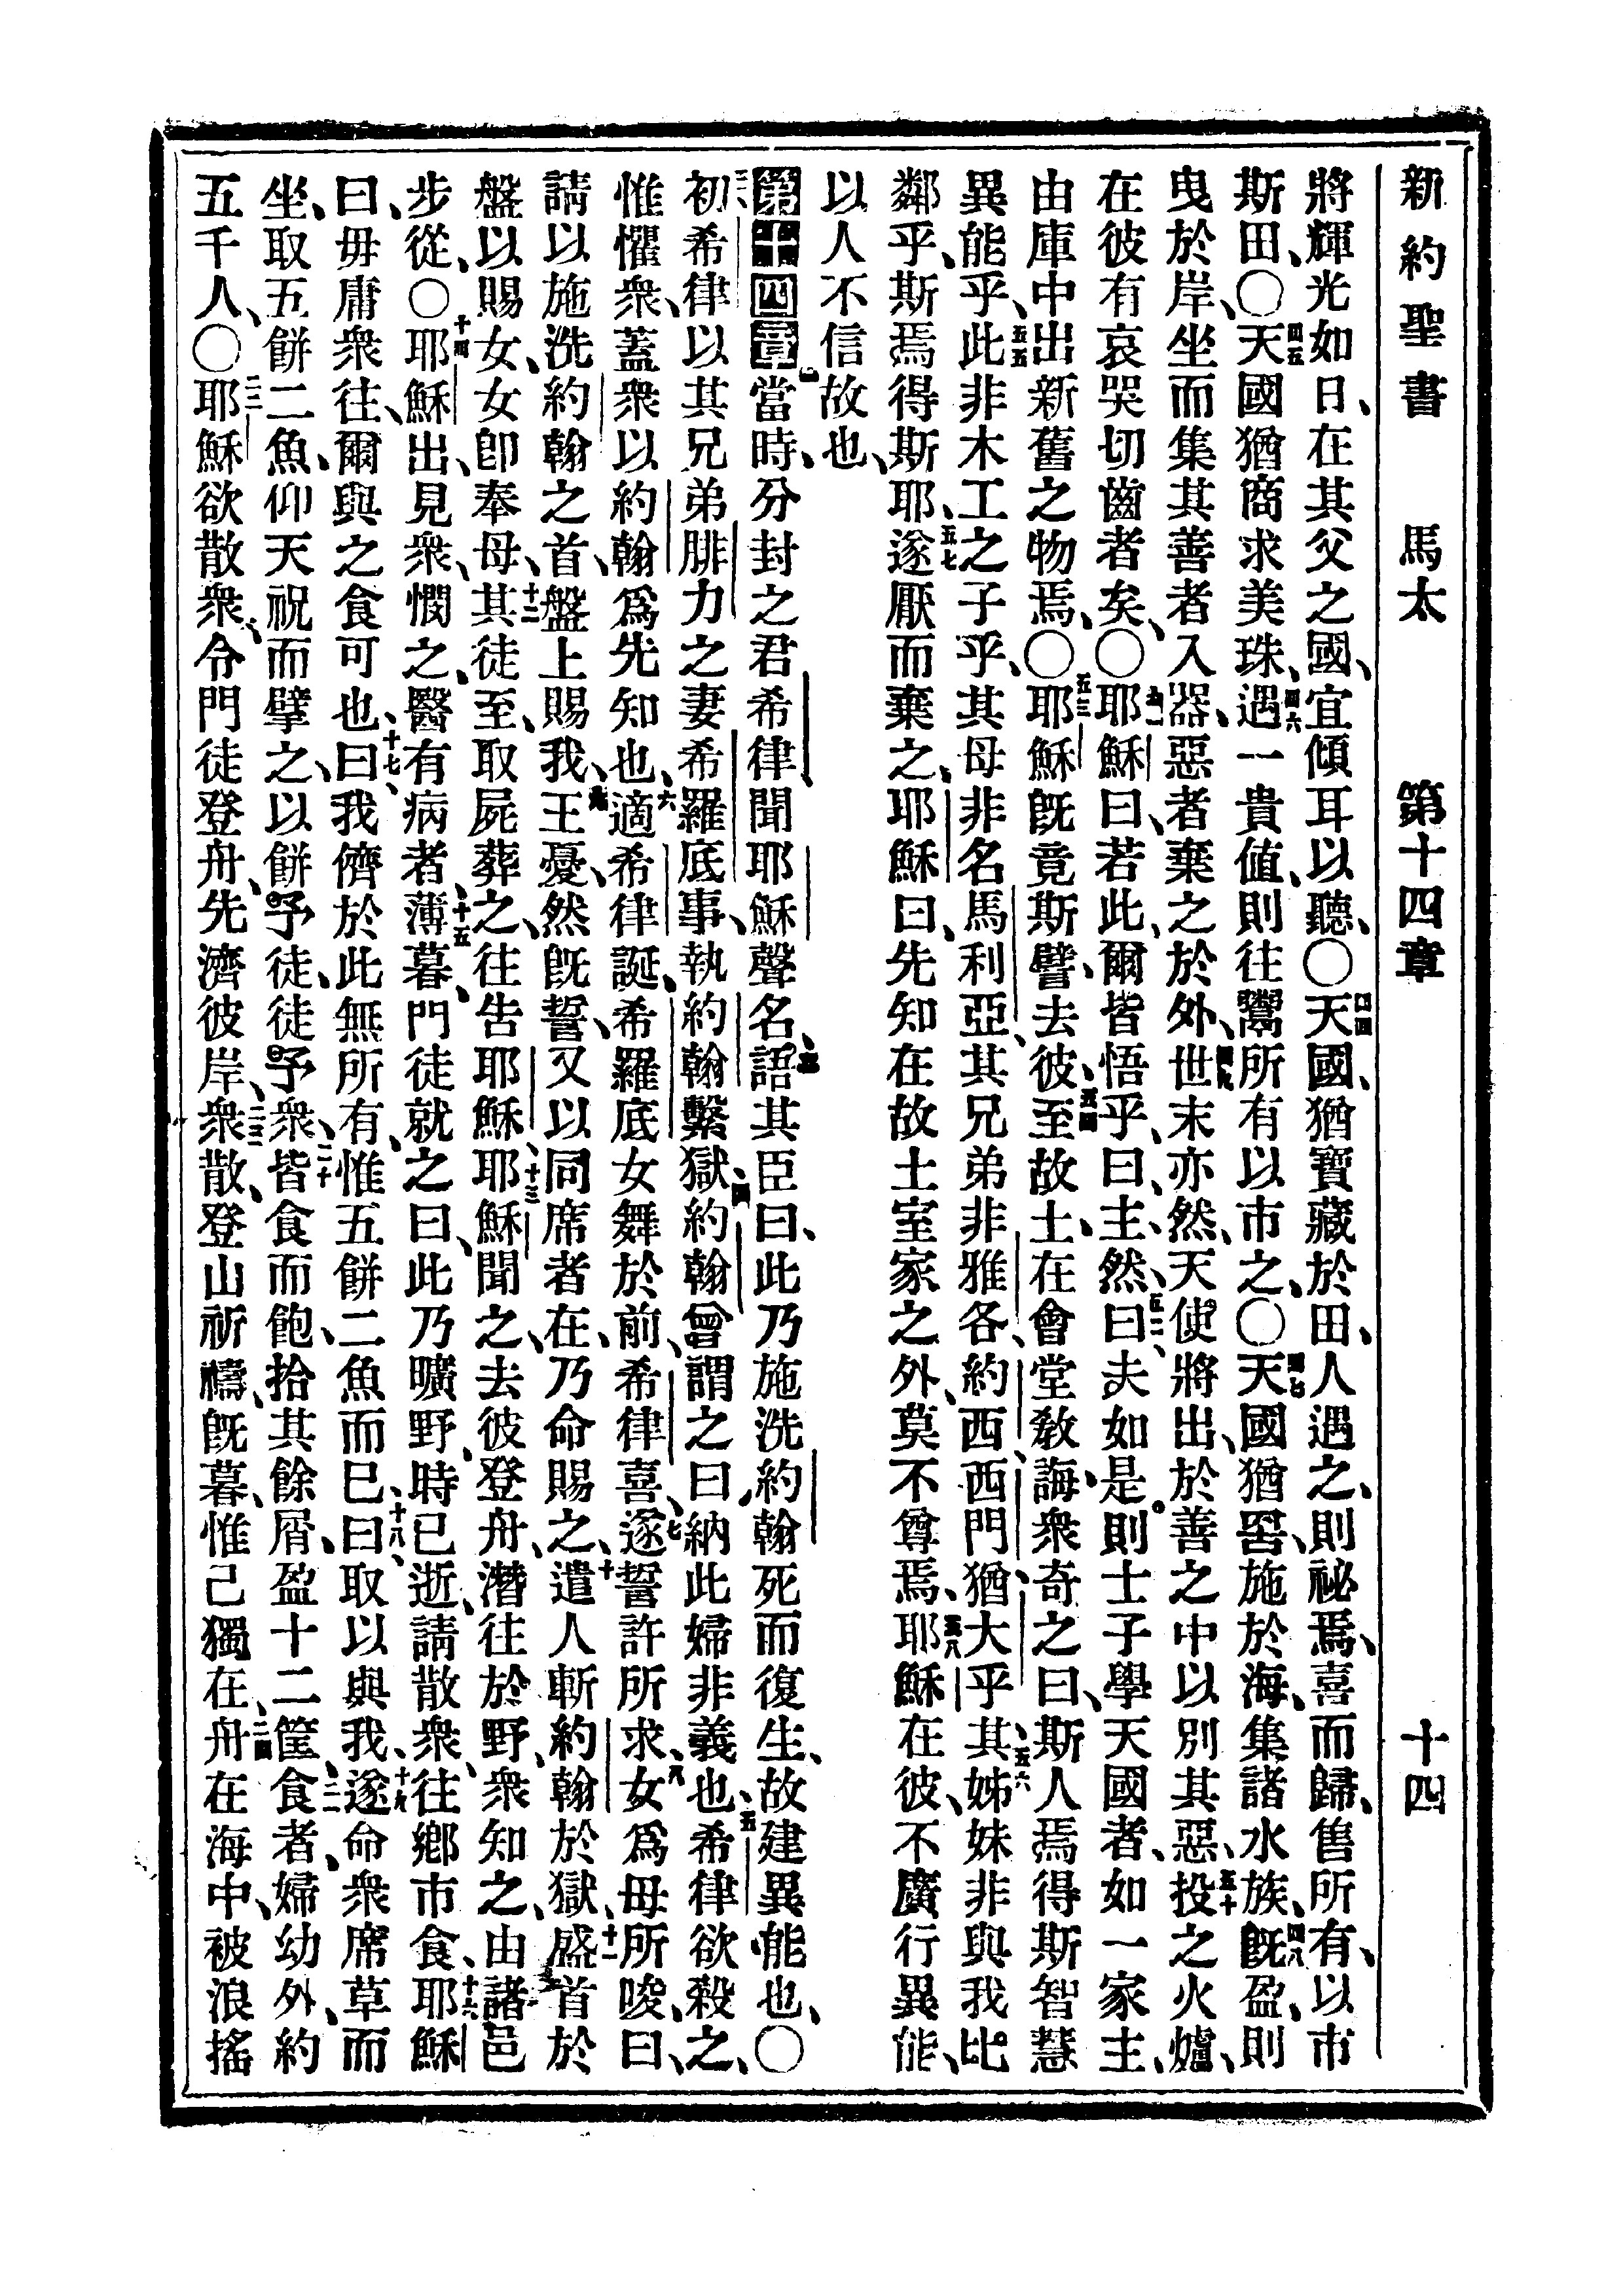 新約聖書 馬太 第十四章 十四
將輝光如日、在其父之國、宜傾耳以聽、〇四四天國、猶寶藏於田、人遇之、則祕焉、喜而歸、售所有、以市
斯田、〇四五天國猶商求美珠、四六遇一貴値、則往鬻所有以市之、〇四七天國猶罟、施於海、集諸水族、四八旣盈、則
曳於岸、坐而集其善者入器、惡者棄之於外、四九世末亦然、天使將出、於善之中以別其惡、五十投之火爐、
在彼有哀哭切齒者矣、〇五一耶穌曰、若此、爾皆悟乎、曰、主、然、五二曰、夫如是、則士子學天國者、如一家主、
由庫中出新舊之物焉、〇五三耶穌旣竟斯譬、去彼、五四至故土、在會堂敎誨、衆奇之曰、斯人焉得斯智慧
異能乎、五五此非木工之子乎、其母非名馬利亞、其兄弟非雅各、約西、西門、猶大乎、五六其姊妹非與我比
鄰乎、斯焉得斯耶、五七遂厭而棄之、耶穌曰、先知在故土室家之外、莫不尊焉、五八耶穌在彼、不廣行異能、
以人不信故也、
第十四章一當時、分封之君希律聞耶穌聲名、二語其臣曰、此乃施洗約翰死而復生、故建異能也、〇
三初希律以其兄弟腓力之妻希羅底事、執約翰繫獄、四約翰曾謂之曰、納此婦非義也、五希律欲殺之、
惟懼衆、蓋衆以約翰爲先知也、六適希律誕、希羅底女舞於前、希律喜、七遂誓許所求、八女爲母所唆、曰、
請以施洗約翰之首、盤上賜我、九王憂、然旣誓、又以同席者在、乃命賜之、十遣人斬約翰於獄、十一盛首於
盤以賜女、女卽奉母、十二其徒至、取屍葬之、往告耶穌、十三耶穌聞之、去彼登舟、潛往於野、衆知之、由諸邑
步從、〇十四耶穌出、見衆、憫之、醫有病者、十五薄暮、門徒就之曰、此乃曠野、時已逝、請散衆、往鄉市食、十六耶穌
曰、毋庸衆往、爾與之食可也、十七曰、我儕於此無所有、惟五餅二魚而已、十八曰、取以與我、十九遂命衆席草而
坐、取五餅二魚、仰天祝而擘之、以餅予徒、徒予衆、二十皆食而飽、拾其餘屑、盈十二筐、二一食者、婦幼外、約
五千人、〇二二耶穌欲散衆、令門徒登舟、先濟彼岸、二三衆散、登山祈禱、旣暮、惟己獨在、二四舟在海中、被浪搖